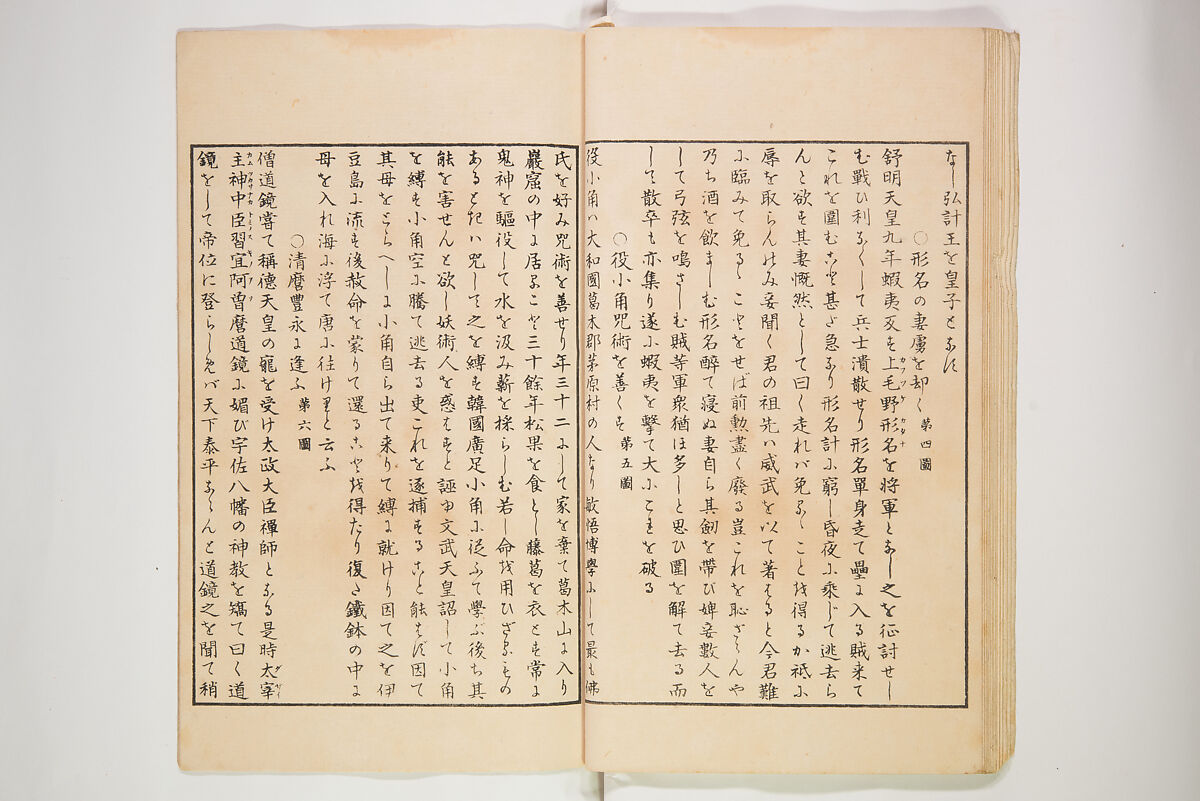 なし弘計王を皇子となす
○形名の妻虜を却く 第四圖
舒明天皇九年蝦夷反す上毛野形名を将軍となし之を征討せし
む戰ひ利なくして兵士潰散せり形名單身走て壘に入る賊来て
これを圍むこと甚だ急なり形名計に窮し昏夜に乘じて逃去ら
んと欲す其妻慨然として曰く走れバ免るゝことを得るか祇に
辱を取らんのみ妾聞く君の祖先ハ威武を以て著はると今君難
に臨みて免るゝことをせば前勲盡く廢る豈これを恥ざらんや
乃ち酒を飲ましむ形名醉て寝ぬ妻自ら其劔を帶び婢妾數人を
して弓弦を鳴さしむ賊等軍衆猶ほ多しと思ひ圍を解て去る而
して散卒も亦集り遂に蝦夷を擊て大にこれを破る
○役小角咒術を善くす 第五圖
役小角ハ大和國葛木郡茅原村の人なり敏悟博學にして最も佛
氏を好み咒術を善せり年三十二にして家を棄て葛木山に入り
巖窟の中に居ること三十餘年松果を食とし藤葛を衣とす常に
鬼神を驅役して水を汲み薪を採らしむ若し命を用ひざるもの
あるときハ咒して之を縛す韓國廣足小角に従ふて學ぶ後ち其
能を害せんと欲し妖術人を惑はすと誣ゆ文武天皇詔して小角
を縛す小角空に騰て逃去る吏これを逐捕することを能はず因て
其母をとらへしに小角自ら出て来りて縛に就けり因て之を伊
豆島に流す後赦命を蒙りて還ることを得たり復た鐵鉢の中に
母を入れ海に浮て唐に往けりと云ふ
○清麿豊永に逢ふ 第六圖
僧道鏡嘗て稱德天皇の寵を受け太政大臣禪師となる是時太宰
主神中臣習宜阿曽麿道鏡に媚び宇佐八幡の神教を矯て曰く道
鏡をして帝位に登らしめバ天下泰平ならんと道鏡之を聞て稍